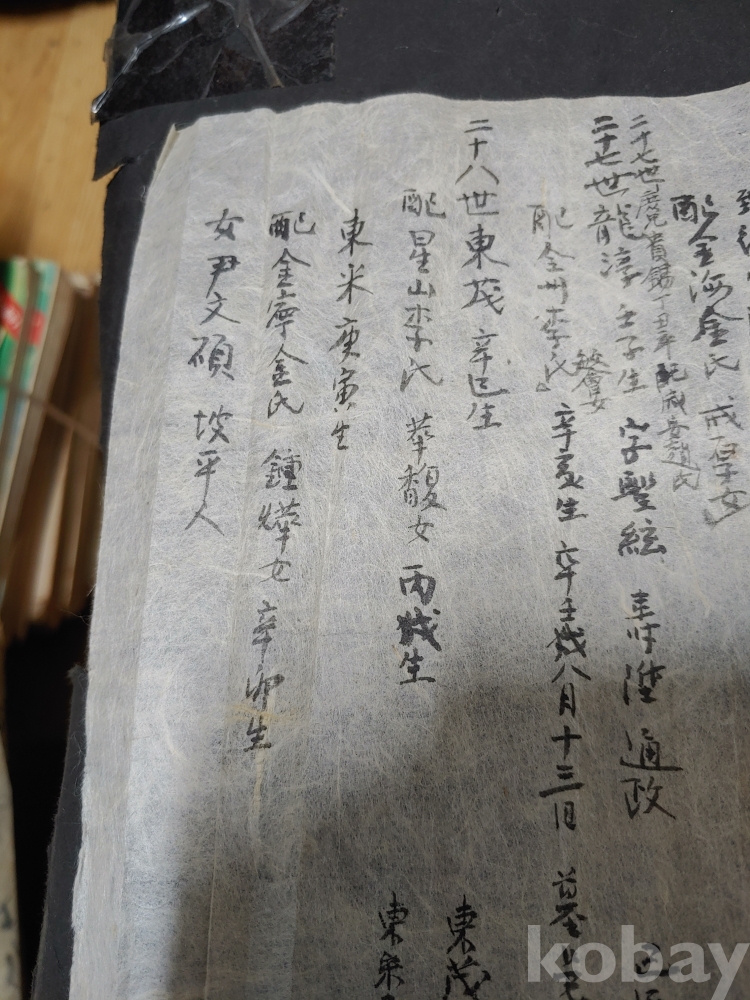 配金海金氏 成厚女
二十七世 貴錫 丁丑年 配 趙氏
二十七世龍淳 壬子生 字聖絃 壽陞通政
配全州李氏 敏會女 辛亥生 卒壬戌八月十三日 墓
二十八世東茂 辛巳生
配星山李氏 華馥女 丙戌生
東米庚寅生
配金寧金氏 鍾燁女 辛卯生
女尹文碩 坡平人
東茂
東
kobay